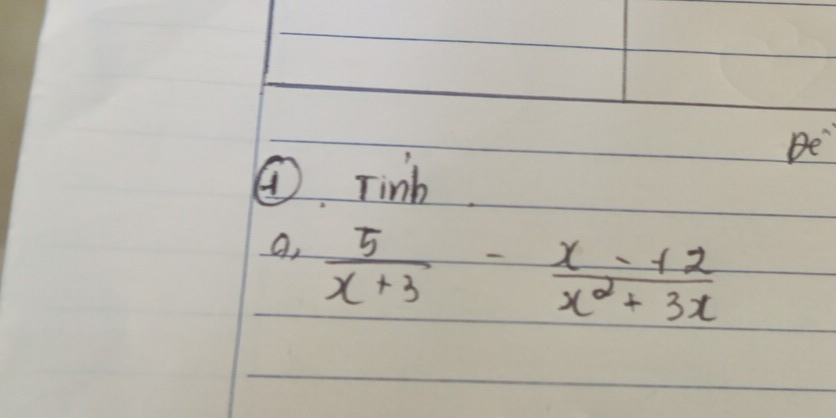 Đề
①. Tính.
a, \frac{5}{x+3} - \frac{x-12}{x^2+3x}